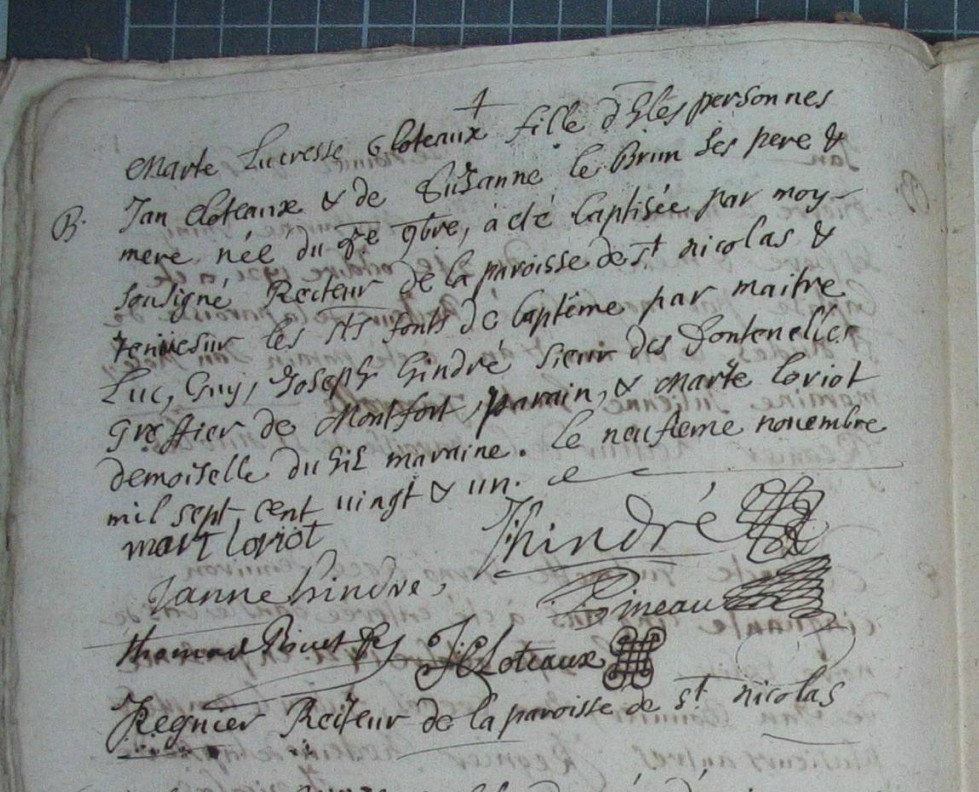 4
Marte Lucresse Cloteaux fille d'hles personnes
B. Jan Cloteaux & de Suzanne le Brun ses pere &
mere née du 9bre, à été baptisée par moy
sousigné Recteur de la paroisse de st nicolas &
tenüe sur les sts fonts de baptême par maitre
Luc, Guy, Joseph hindré sieur des fontenelles
Greffier de Montfort, parain, & Marte Loriot
demoiselle du maraine. le neufieme novembre
mil sept cent vingt & un.
mart loriot
J hindré
Janne hindre,
Pineau
thomas J Cloteaux
Regnier Recteur de la paroisse de st nicolas